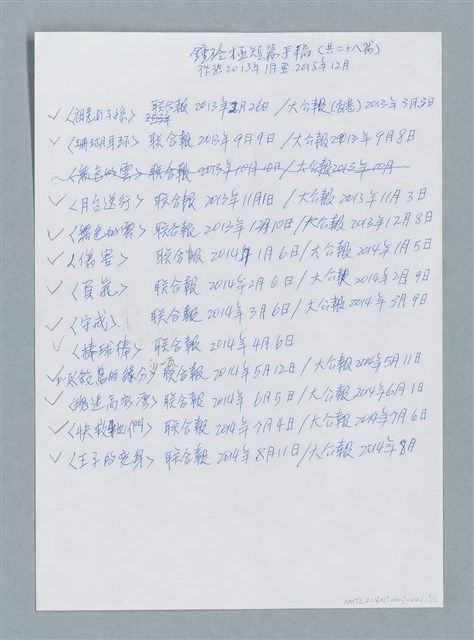 鍾玲極短篇手稿(共二十八篇)
作於2013年1月至2015年12月
✓ 聯合報 2013年2月26日 / 大公報(香港) 2013年3月3日
✓〈珊瑚耳環〉聯合報 2013年9月9日 / 大公報 2013年9月8日
〈無言的雲〉聯合報 2013年10月 / 大公報 2013年10月
✓〈月台送行〉聯合報 2013年11月1日 / 大公報 2013年11月3日
✓〈無色的雲〉聯合報 2013年12月10日 / 大公報 2013年12月8日
✓〈傷害〉聯合報 2014年1月6日 / 大公報 2014年1月5日
✓〈買氣〉聯合報 2014年2月6日 / 大公報 2014年2月9日
✓〈守戒〉聯合報 2014年3月6日 / 大公報 2014年3月9日
✓〈棒球棒〉聯合報 2014年4月6日
✓ 聯合報 2014年5月12日 / 大公報 2014年5月11日
✓ 聯合報 2014年6月5日 / 大公報 2014年6月1日
✓ 聯合報 2014年7月4日 / 大公報 2014年7月6日
✓〈王子的變身〉聯合報 2014年8月11日 / 大公報 2014年8月